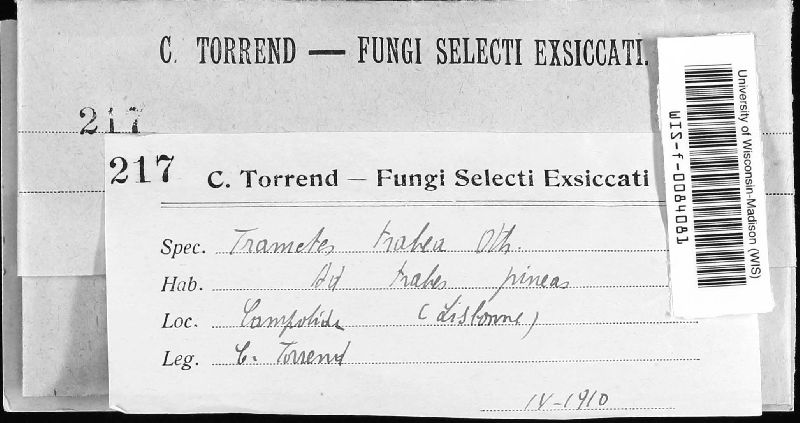 C. TORREND — FUNGI SELECTI EXSICCATI.
217
217 C. Torrend — Fungi Selecti Exsiccati
Spec. Trametes trabea Oth.
Hab. Ad trabes pineas
Loc. Campolide (Lisbonne)
Leg. C. Torrend
IV-1910
University of Wisconsin-Madison (WIS)
WIS-f-0084081